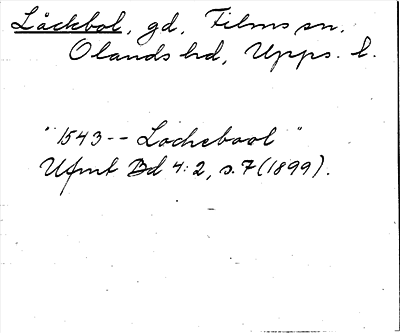 Låckbol, gd, Films sn.
Olands hd, Upps. l.
"1543 -- Lochebool"
Ufmt Bd 4:2, s. 7 (1899).